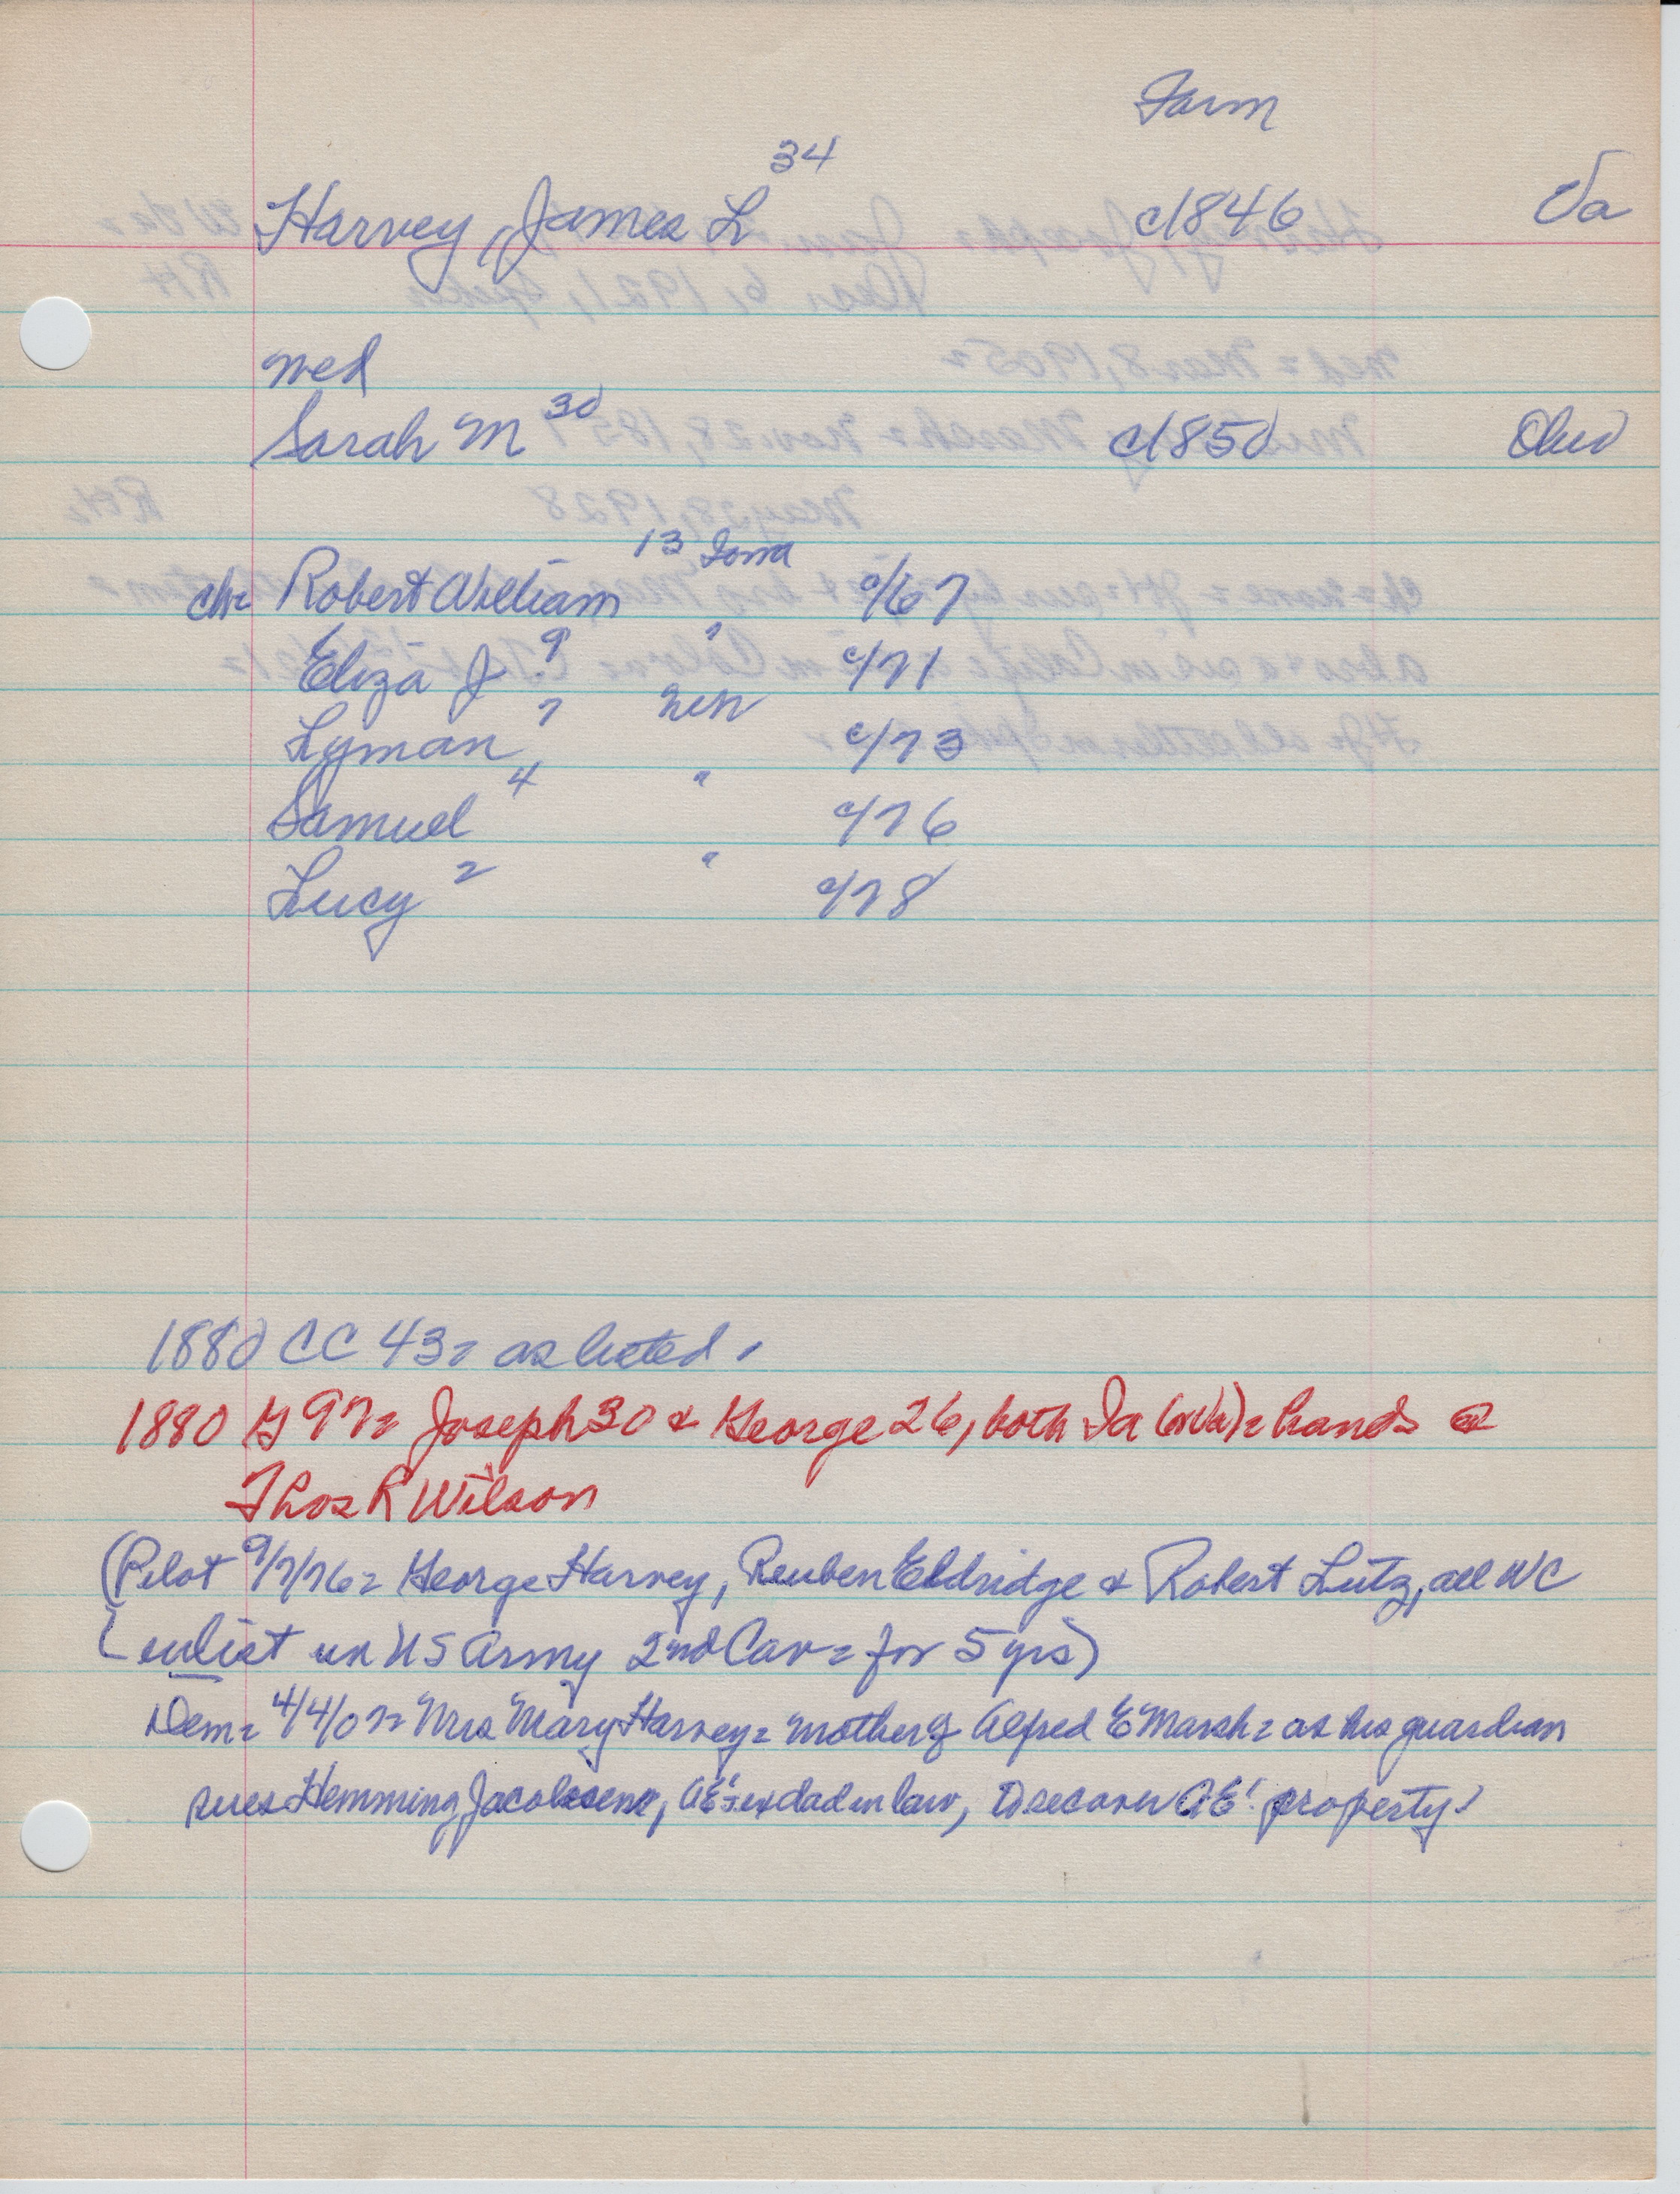 Farm
34
Harvey, James L c1846 Va
wed
Sarah M 30 c1850 Ohio
13 Iowa
ch= Robert William c/67
Eliza J 9 " c/71
Lyman 7 Neb c/73
Samuel 4 " c/76
Lucy 2 " c/78
1880 CC 43= as listed.
1880 G 97= Joseph 30 & George 26, both Ia (or Va)= hands @
Thos R Wilson
(Pilot 9/7/76= George Harvey, Reuben Eldridge & Robert Lutz, all WC
enlist in US Army 2nd Cav= for 5 yrs)
Dem= 4/4/07= Mrs Mary Harvey= mother of Alfred E Marsh= as his guardian
sues Hemming Jacobsen, AE's ex dad in law, to recover AE' property.